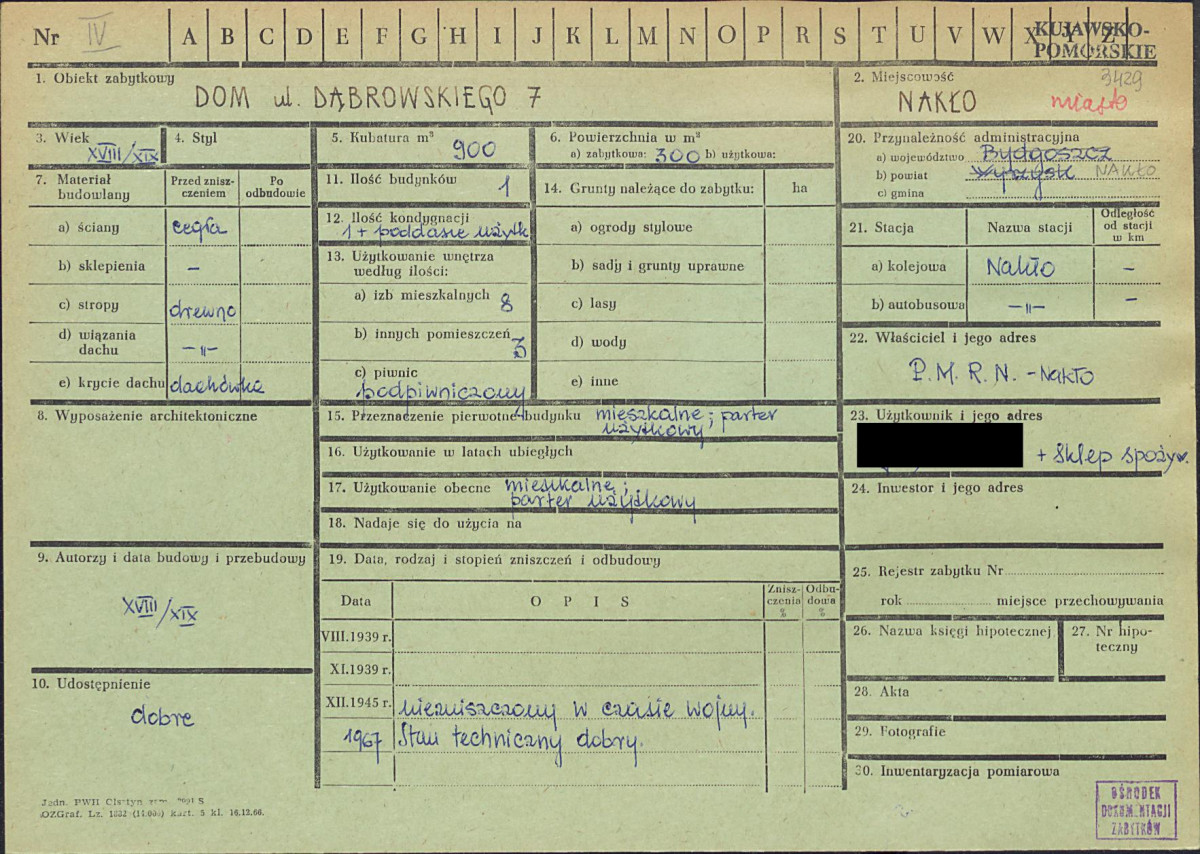 Nr IV A B C D E F G H I J K L M N O P R S T U V W X Y Z KUJAWSKO-
POMORSKIE
1. Obiekt zabytkowy
DOM ul. DĄBROWSKIEGO 7
2. Miejscowość 3429
NAKŁO miasto
3. Wiek
XVIII/XIX
4. Styl
5. Kubatura m³
900
6. Powierzchnia w m²
a) zabytkowa: 300 b) użytkowa:
7. Materiał
budowlany
Przed znisz-
czeniem
Po
odbudowie
a) ściany cegła
b) sklepienia –
c) stropy drewno
d) wiązania
dachu –"–
e) krycie dachu dachówka
8. Wyposażenie architektoniczne
9. Autorzy i data budowy i przebudowy
XVIII/XIX
10. Udostępnienie
dobre
11. Ilość budynków 1
12. Ilość kondygnacji
1 + poddasze użytk
13. Użytkowanie wnętrza
według ilości:
a) izb mieszkalnych 8
b) innych pomieszczeń 3
c) piwnic
podpiwniczony
14. Grunty należące do zabytku: ha
a) ogrody stylowe
b) sady i grunty uprawne
c) lasy
d) wody
e) inne
15. Przeznaczenie pierwotne budynku mieszkalne; parter
użytkowy
16. Użytkowanie w latach ubiegłych
17. Użytkowanie obecne mieszkalne;
parter użytkowy
18. Nadaje się do użycia na
19. Data, rodzaj i stopień zniszczeń i odbudowy
Data
O P I S
Znisz-
czenia
%
Odbu-
dowa
%
VIII.1939 r.
XI.1939 r.
XII.1945 r. niezniszczony w czasie wojny.
1967 Stan techniczny dobry.
20. Przynależność administracyjna
a) województwo Bydgoszcz
b) powiat Wyrzysk NAKŁO
c) gmina
21. Stacja
Nazwa stacji
Odległość
od stacji
w km
a) kolejowa Nakło –
b) autobusowa –"– –
22. Właściciel i jego adres
P.M.R.N. - Nakło
23. Użytkownik i jego adres
+ sklep spożyw.
24. Inwestor i jego adres
25. Rejestr zabytku Nr
rok miejsce przechowywania
26. Nazwa księgi hipotecznej
27. Nr hipo-
teczny
28. Akta
29. Fotografie
30. Inwentaryzacja pomiarowa
OŚRODEK
DOKUMENTACJI
ZABYTKÓW
Jedn. PWH Olsztyn S
OZGraf. Lz. 1832 kart. 5 kl. 16.12.66.